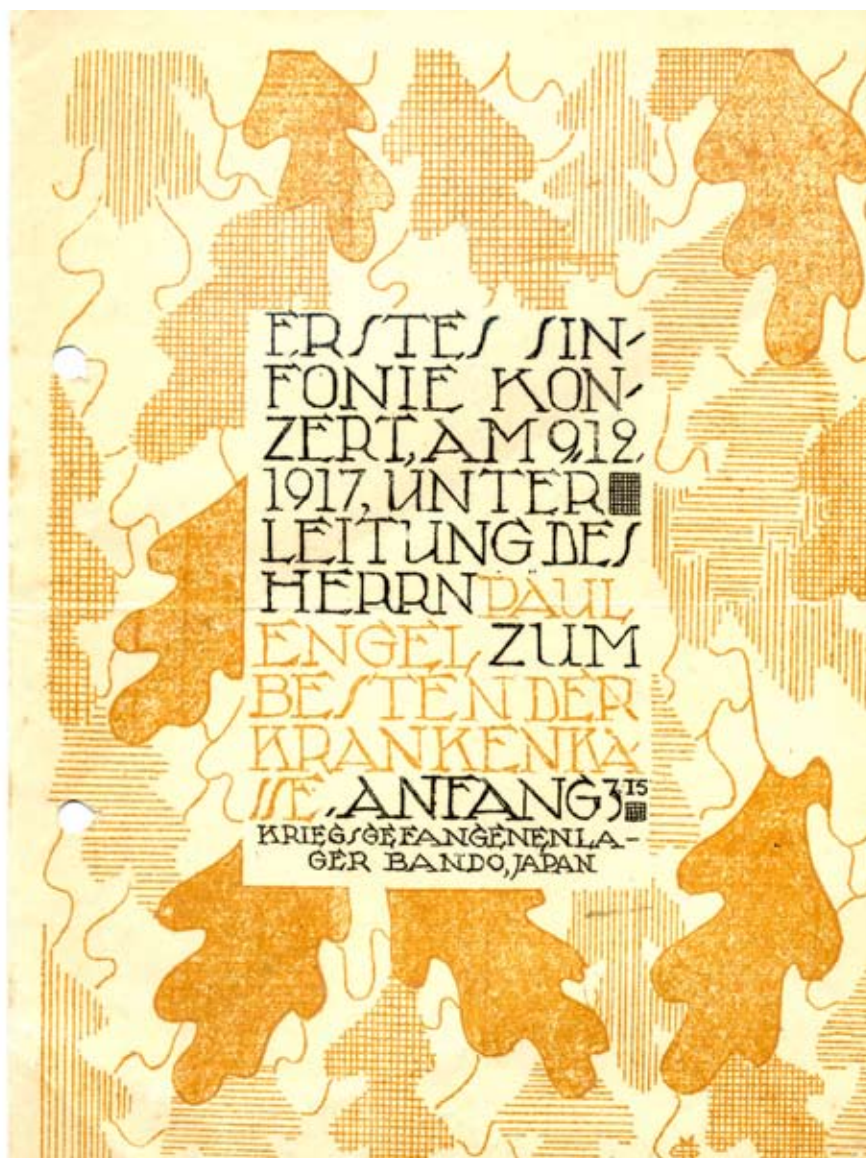 ERSTES SIN-
FONIE KON-
ZERT, AM 9,12,
1917, UNTER
LEITUNG DES
HERRN PAUL
ENGEL, ZUM
BESTEN DER
KRANKENKA-
SSE, ANFANG 3 15
KRIEGSGEFANGENENLA-
GER BANDO, JAPAN